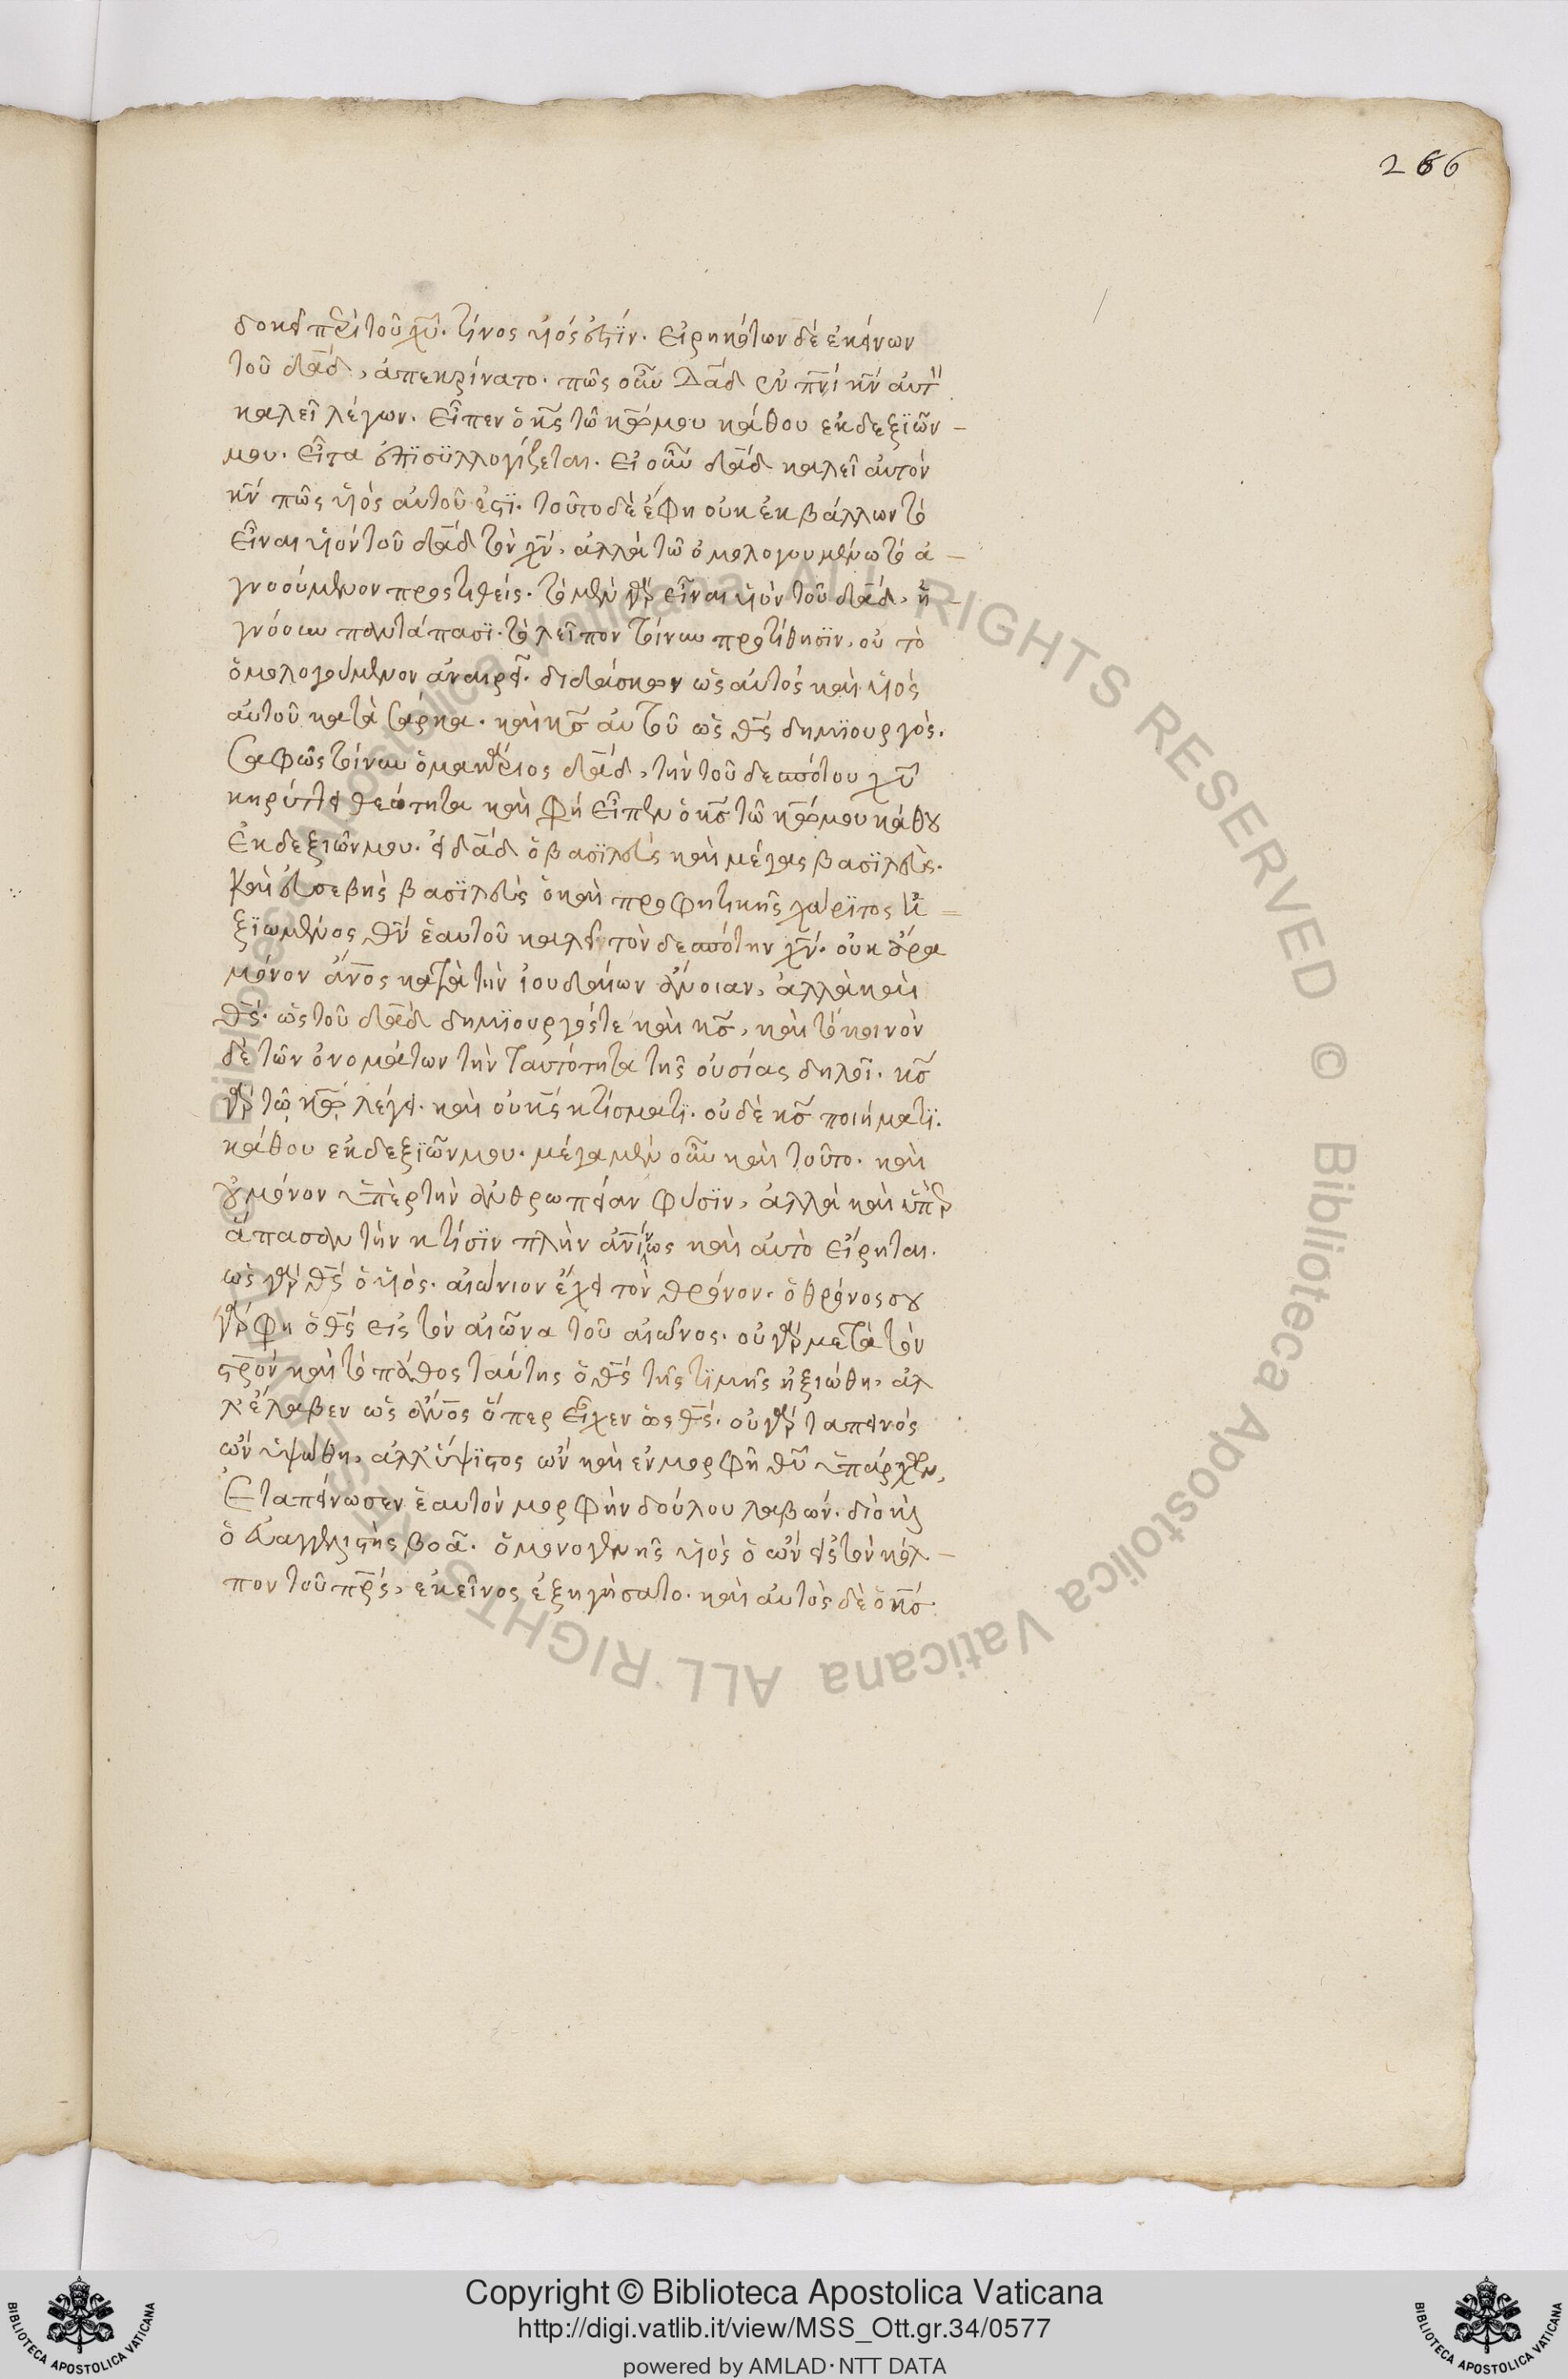 266
δοκεῖ περὶ τοῦ χ̅υ̅. τίνος υἱός ἐστϊν. εἰρηκότων δὲ ἐκείνων
τοῦ δα̅δ̅, ἀπεκρίνατο. πῶς οὖν Δα̅δ̅ ἐν π̅ν̅ι̅ κ̅ν̅ αὐτὸν
καλεῖ λέγων. εἶπεν ὁ κ̅ς̅ τῶ κ̅ω̅ μου κάθου ἐκ δεξϊῶν
μου. εἶτα ἐπϊσϋλλογίζεται. εἰ οὖν δα̅δ̅ καλεῖ αὐτὸν
κ̅ν̅ πῶς υἱὸς αὐτοῦ ἐστϊ. τοῦτο δὲ ἔφη οὐκ ἐκβάλλων τὸ
εἶναι υἱὸν τοῦ δα̅δ̅ τὸν χ̅ν̅, ἀλλὰ τῶ ὁμολογουμένω τὸ ἀ-
γνοούμενον προστιθείς. τὸ μὲν γὰρ εἶναι υἱὸν τοῦ δα̅δ̅, ἠ-
γνόουν παντάπασϊ. τὸ λεῖπον τοίνυν προστίθησϊν, οὐ τὸ
ὁμολογούμενον ἀναιρεῖ. διδάσκων ὡς αὐτὸς καὶ υἱὸς
αὐτοῦ κατὰ σάρκα. καὶ κ̅ς̅ αὐτοῦ ὡς θ̅ς̅ δημϊουργὸς.
Σαφῶς τοίνυν ὁ μακάριος δα̅δ̅, τὴν τοῦ δεσπότου χ̅υ̅
κηρύττει θεότητα καὶ φη εἶπεν ὁ κ̅ς̅ τῶ κ̅ω̅ μου κάθου
ἐκ δεξιῶν μου. εἰ δα̅δ̅ ὁ βασϊλεὺς καὶ μέγας βασϊλεὺς.
καὶ εὐσεβὴς βασϊλεὺς ὁ καὶ προφητικῆς χάρϊτος ἠ-
ξϊωμένος θ̅ν̅ ἑαυτοῦ καλεῖ τὸν δεσπότην χ̅ν̅. οὐκ ἄρα
μόνον ἄν̅ο̅ς̅ κατὰ τὴν ἰουδαίων ἄνοιαν, ἀλλὰ καὶ
θ̅ς̅. ὡς τοῦ δα̅δ̅ δημϊουργός τε καὶ κ̅ς̅, καὶ τὸ κοινὸν
δὲ τῶν ὀνομάτων τὴν ταυτότητα τῆς οὐσίας δηλοῖ. κ̅ς̅
γὰρ τῶ κ̅ω̅ λέγει. καὶ οὐ κ̅ς̅ κτίσματϊ. οὐδὲ κ̅ς̅ ποιήματϊ.
κάθου ἐκ δεξϊῶν μου. μέγα μὲν οὖν καὶ τοῦτο. καὶ
οὐ μόνον ὑπὲρ τὴν ἀνθρωπείαν φύσϊν, ἀλλὰ καὶ ὑπὲρ
ἅπασαν τὴν κτίσϊν πλὴν ἀν̅ίνως καὶ αὐτὸ εἴρηται.
ὡς γὰρ θ̅ς̅ ὁ υἱὸς. αἰώνιον ἔχει τὸν θρόνον. ὁ θρόνος σου
γάρ φη ὁ θ̅ς̅ εἰς τὸν αἰῶνα τοῦ αἰῶνος. οὐ γὰρ μετὰ τὸν
στ̅ρ̅ο̅ν̅ καὶ τὸ πάθος ταύτης ὁ θ̅ς̅ τῆς τϊμῆς ἠξιώθη, ἀλ
λ’ ἔλαβεν ὡς ἄν̅ο̅ς̅ ὅπερ εἶχεν ὡς θ̅ς̅. οὐ γὰρ ταπεινὸς
ὢν ὑψώθη, ἀλλ’ ὕψϊστος ὢν καὶ ἐν μορφῆ θ̅υ̅ ὑπάρχων,
Ἐταπείνωσεν ἑαυτὸν μορφὴν δούλου λαβών. διὸ καὶ
ὁ εὐαγγελιστὴς βοᾶ. ὁ μονογενὴς υἱὸς ὁ ὢν εἰς τὸν κόλ-
πον τοῦ π̅ρ̅ς̅, ἐκεῖνος ἐξηγήσατο. καὶ αὐτὸς δὲ ὁ κ̅ς̅
Copyright © Biblioteca Apostolica Vaticana
http://digi.vatlib.it/view/MSS_Ott.gr.34/0577
powered by AMLAD·NTT DATA